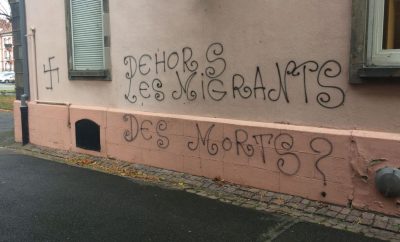 DEHORS
LES MIGRANTS
DES MORTS ?